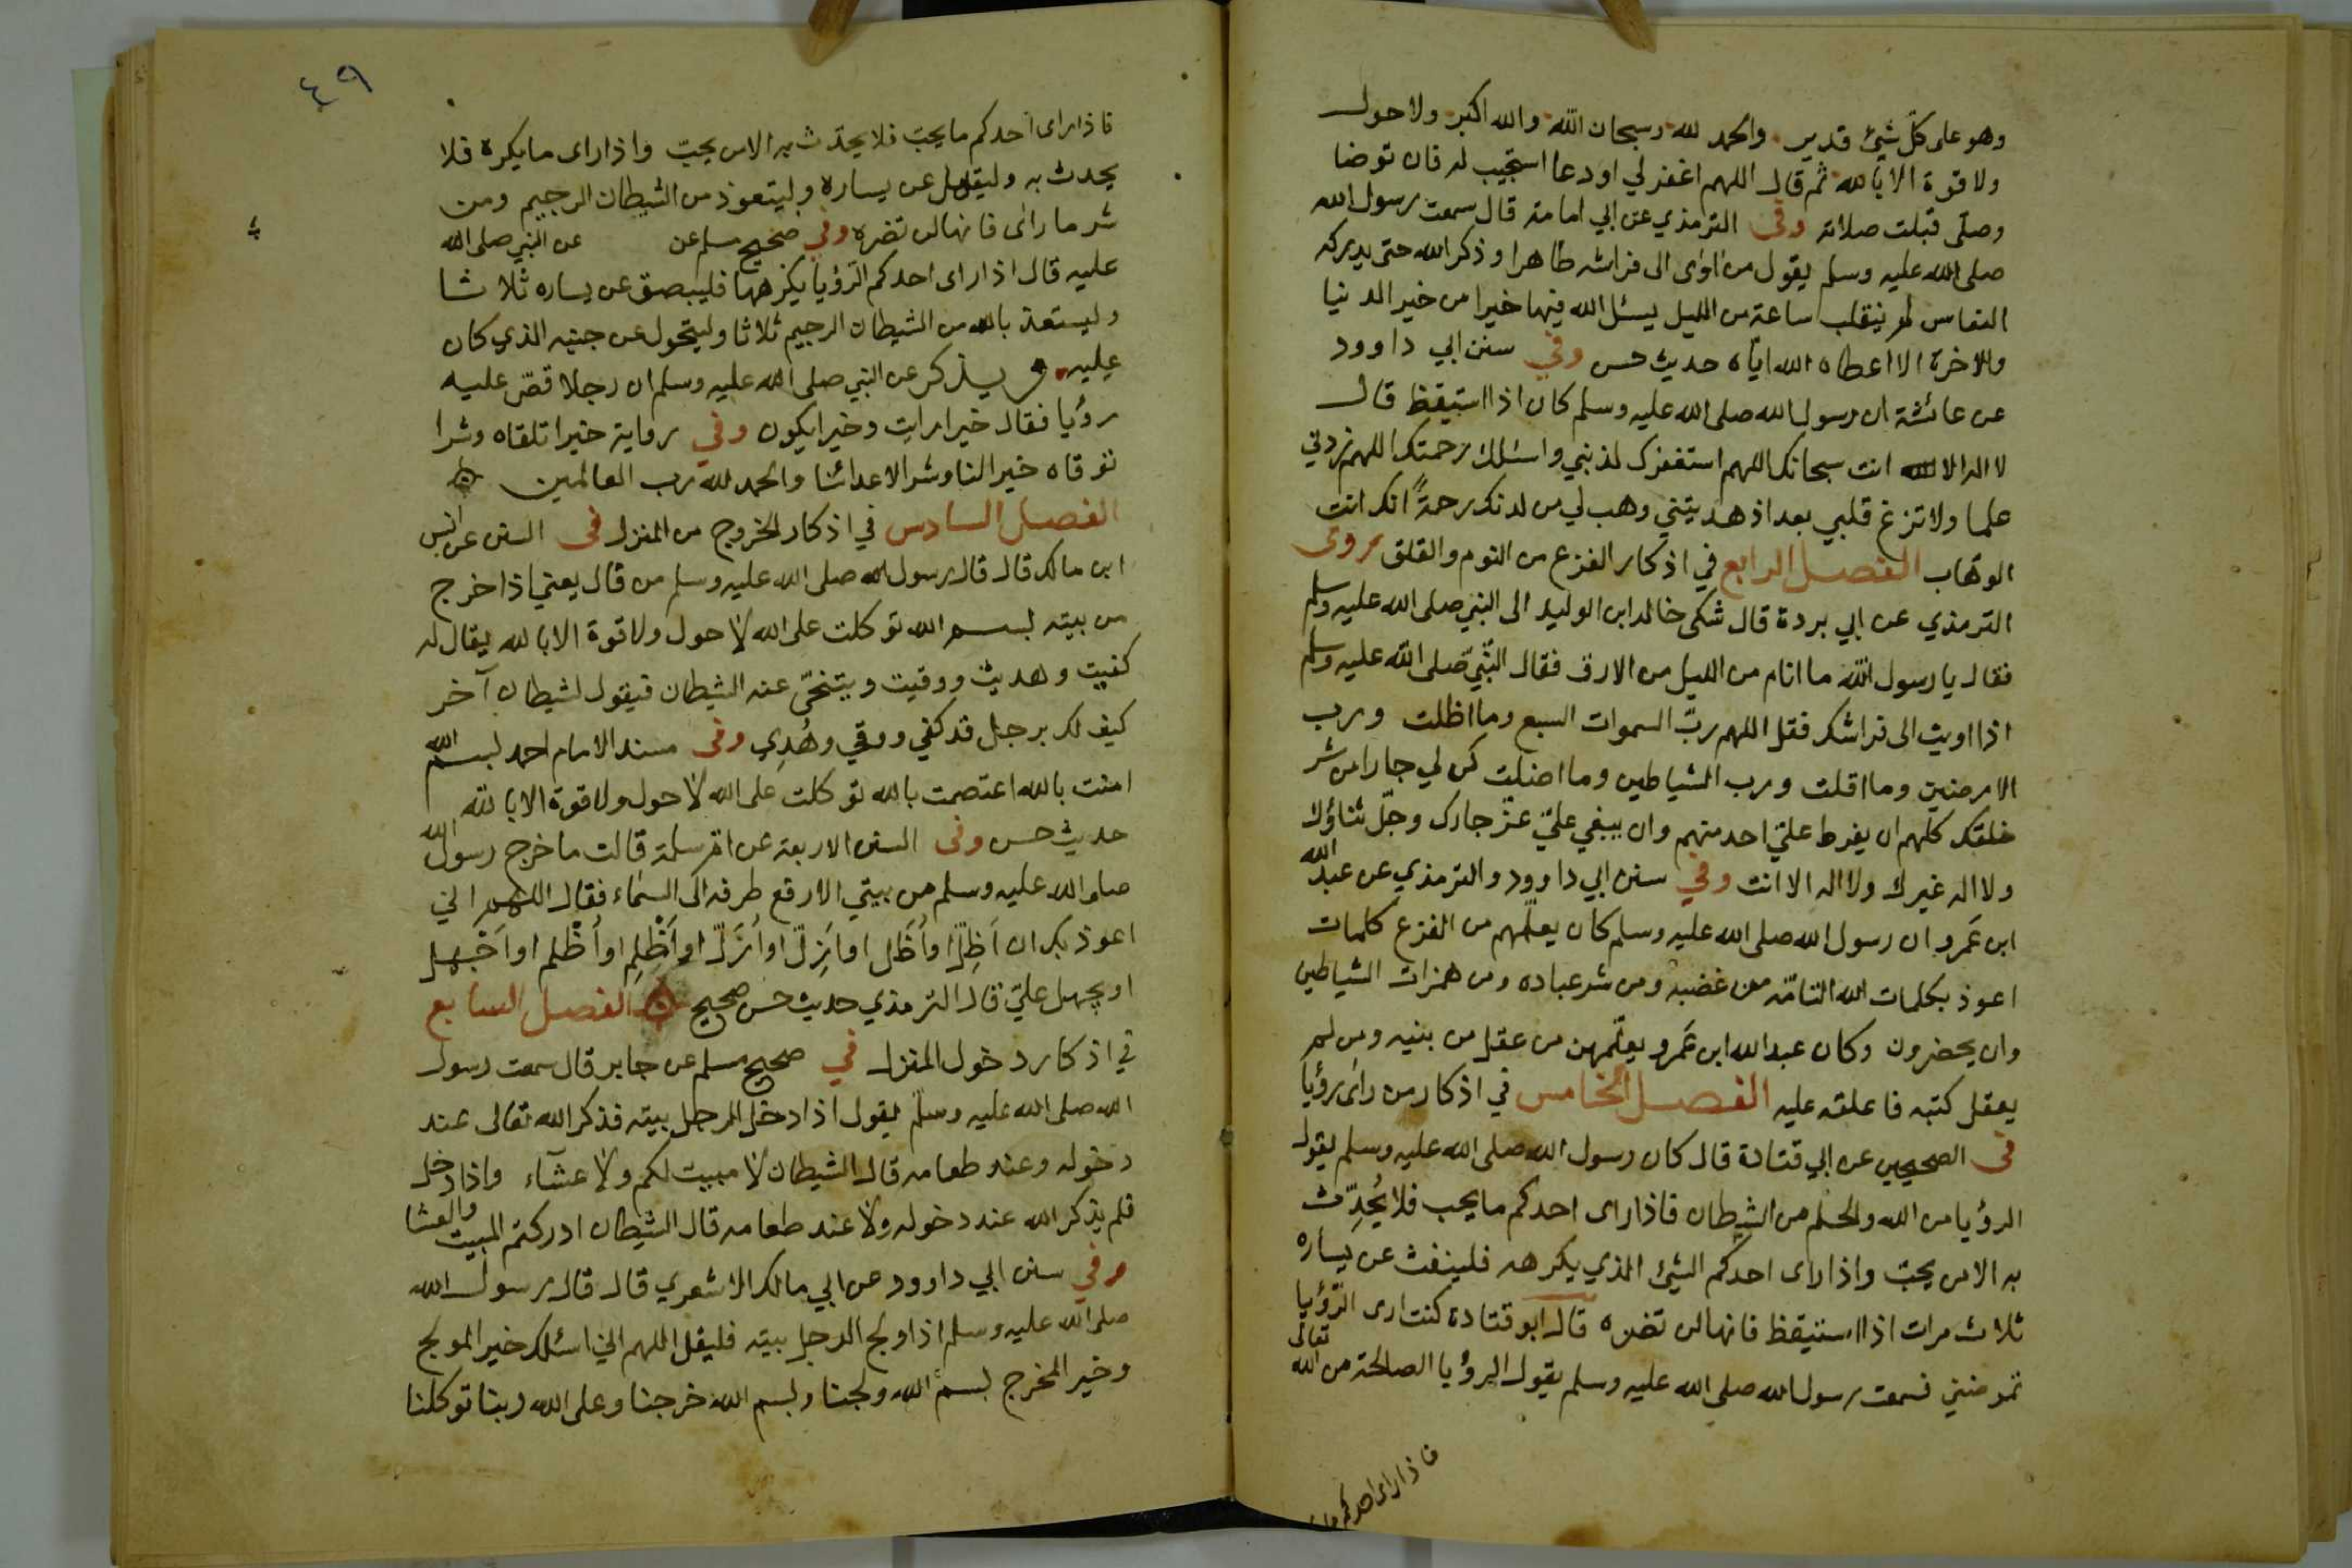 وهو على كلّ شيئ قدير والحمد لله وسبحان الله والله اكبر ولا حول
ولا قوة الا بالله ثم قال اللهم اغفر لي او دعا استجيب له فان توضا
وصلّى قبلت صلاته وفى الترمذي عن ابي امامة قال سمعت رسول الله
صلى الله عليه وسلم يقول من اوى الى فراشه طاهرا وذكر الله حتى يدركه
النعاس لم ينقلب ساعة من الليل يسئل الله فيها خيرا من خير الدنيا
والاخرة الا اعطاه الله ايّاه حديث حسن وفي سنن ابي داوود
عن عائشة ان رسول الله صلى الله عليه وسلم كان اذا استيقظ قال
لا اله الا انت سبحانك اللهم استغفرك لذنبي واسئلك رحمتك اللهم زدني
علما ولا تزغ قلبي بعد اذ هديتني وهب لي من لدنك رحمةً انك انت
الوهّاب الفصل الرابع في اذكار الفزع من النوم والقلق روى
الترمذي عن ابي بردة قال شكى خالد ابن الوليد الى النبي صلى الله عليه وسلم
فقال يا رسول الله ما انام من الليل من الارق فقال النّبيّ صلى الله عليه وسلم
اذا اويت الى فراشك فقل اللهم ربّ السموات السبع وما اظلت ورب
الارضين وما اقلت ورب الشياطين وما اضلت كن لي جارا من شر
خلقك كلهم ان يفرط عليّ احد منهم وان يبغي عليّ عزّ جارك وجلّ ثناؤك
ولا اله غيرك ولا اله الا انت وفي سنن ابي داوود والترمذي عن عبد الله
ابن عَمرو ان رسول الله صلى الله عليه وسلم كان يعلّمهم من الفزع كلمات
اعوذ بكلمات الله التامّه من غضبه ومن شر عباده ومن همزات الشياطين
وان يحضرون وكان عبد الله ابن عَمرو يعلّمهن من عقل من بنيه ومن لم
يعقل كتبه فاعلقه عليه الفصل الخامس في اذكار من راى رؤيا
فى الصحيحين عن ابي قتادة قال كان رسول الله صلى الله عليه وسلم يقول
الرؤيا من الله والحلم من الشيطان فاذا راى احدكم ما يحب فلا يُحدِّث
به الا من يحبّ واذا راى احدكم الشيئ الذي يكرهه فلينفث عن يساره
ثلاث مرات اذا استيقظ فانها لن تضره قال ابو قتادة كنت ارى الرّؤيا
تمرضني فسمعت رسول الله صلى الله عليه وسلم يقول الرؤيا الصالحة من الله تعالى
فاذا راى احدكم ما
٤٩
فاذا راى احدكم ما يحبّ فلا يحدّث به الا من يحبّ واذا راى ما يكره فلا
يحدث به وليتفل عن يساره وليتعوذ من الشيطان الرجيم ومن
شر ما راى فانها لن تضره وفي صحيح مسلم عن عن النبي صلى الله
عليه قال اذا راى احدكم الرّؤيا يكرهها فليبصق عن يساره ثلاثا
وليستعذ بالله من الشيطان الرجيم ثلاثا وليتحول عن جنبه الذي كان
عليه ويذكر عن النبي صلى الله عليه وسلم ان رجلا قصّ عليه
رؤيا فقال خيرا رات وخيرا يكون وفي رواية خيرا تلقاه وشرا
توقاه خير لنا وشر لاعدائنا والحمد لله رب العالمين
الفصل السادس في اذكار الخروج من المنزل فى السنن عن انس
ابن مالك قال قال رسول الله صلى الله عليه وسلم من قال يعني اذا خرج
من بيته بسم الله توكلت على الله لا حول ولا قوة الا بالله يقال له
كفيت وهديت ووقيت ويتنحّى عنه الشيطان فيقول لشيطان آخر
كيف لك برجل قد كفي ووقي وهُدِي وفى مسند الامام احمد بسم الله
امنت بالله اعتصمت بالله توكلت على الله لا حول ولا قوة الا بالله
حديث حسن وفى السنن الاربعة عن ام سلمة قالت ما خرج رسول الله
صلى الله عليه وسلم من بيتي الا رفع طرفه الى السماء فقال اللهم اني
اعوذ بك ان اَضِلّ او اُضَل او اَزِلّ او اُزَلّ او اَظْلِم او اُظْلم او اَجْهل
او يجهل عليّ قال الترمذي حديث حسن صحيح الفصل السابع
في اذكار دخول المنزل في صحيح مسلم عن جابر قال سمعت رسول
الله صلى الله عليه وسلم يقول اذا دخل الرجل بيته فذكر الله تعالى عند
دخوله وعند طعامه قال الشيطان لا مبيت لكم ولا عشاء واذا دخل
فلم يذكر الله عند دخوله ولا عند طعامه قال الشيطان ادركتم المبيت والعشا
وفي سنن ابي داوود عن ابي مالك الاشعري قال قال رسول الله
صلى الله عليه وسلم اذا ولج الرجل بيته فليقل اللهم اني اسئلك خير المولج
وخير المخرج بسم الله ولجنا وبسم الله خرجنا وعلى الله ربنا توكلنا